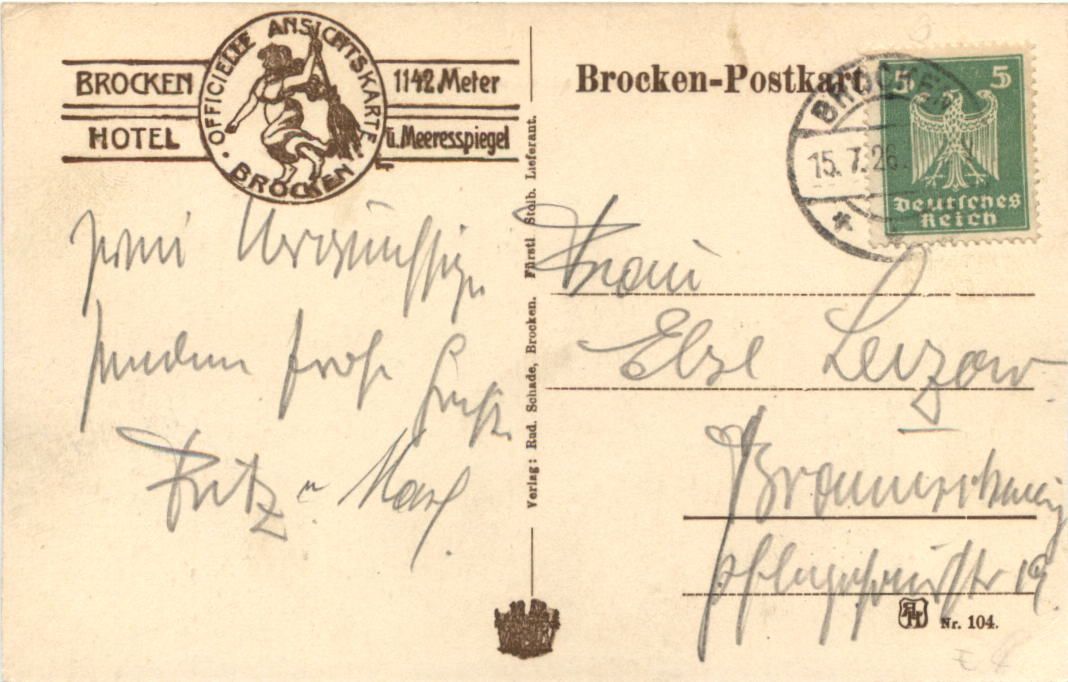 BROCKEN
HOTEL
OFFICIELLE ANSICHTSKARTE
BROCKEN
1142 Meter
ü. Meeresspiegel
Brocken-Postkart
BROCKEN
15. 7. 26.
5 5
Deutsches
Reich
Verlag: Rud. Schade, Brocken. Fürstl Stolb. Lieferant.
Zwei
senden frohe
Grüße
Fritz u.
Frau
Else Leizow
Braunschweig
19
Nr. 104.